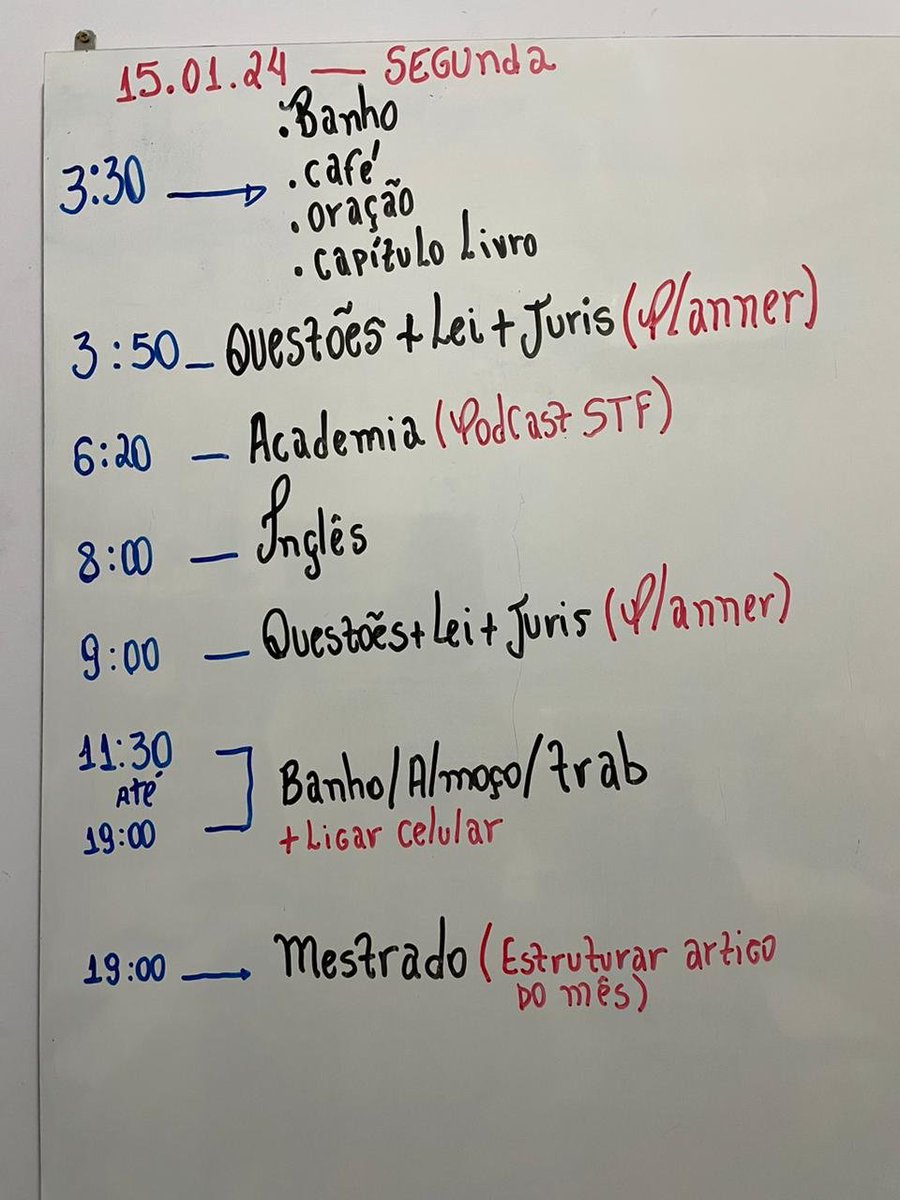 15.01.24 — SEGUnda
.Banho
3:30 → .café
.oração
.capítulo Livro
3:50 — Questões + Lei + Juris (Planner)
6:20 — Academia (Podcast STF)
8:00 — Inglês
9:00 — Questões + Lei + Juris (Planner)
11:30
Até
19:00
Banho/Almoço/trab
+ Ligar celular
19:00 → Mestrado (Estruturar artigo
DO mês)